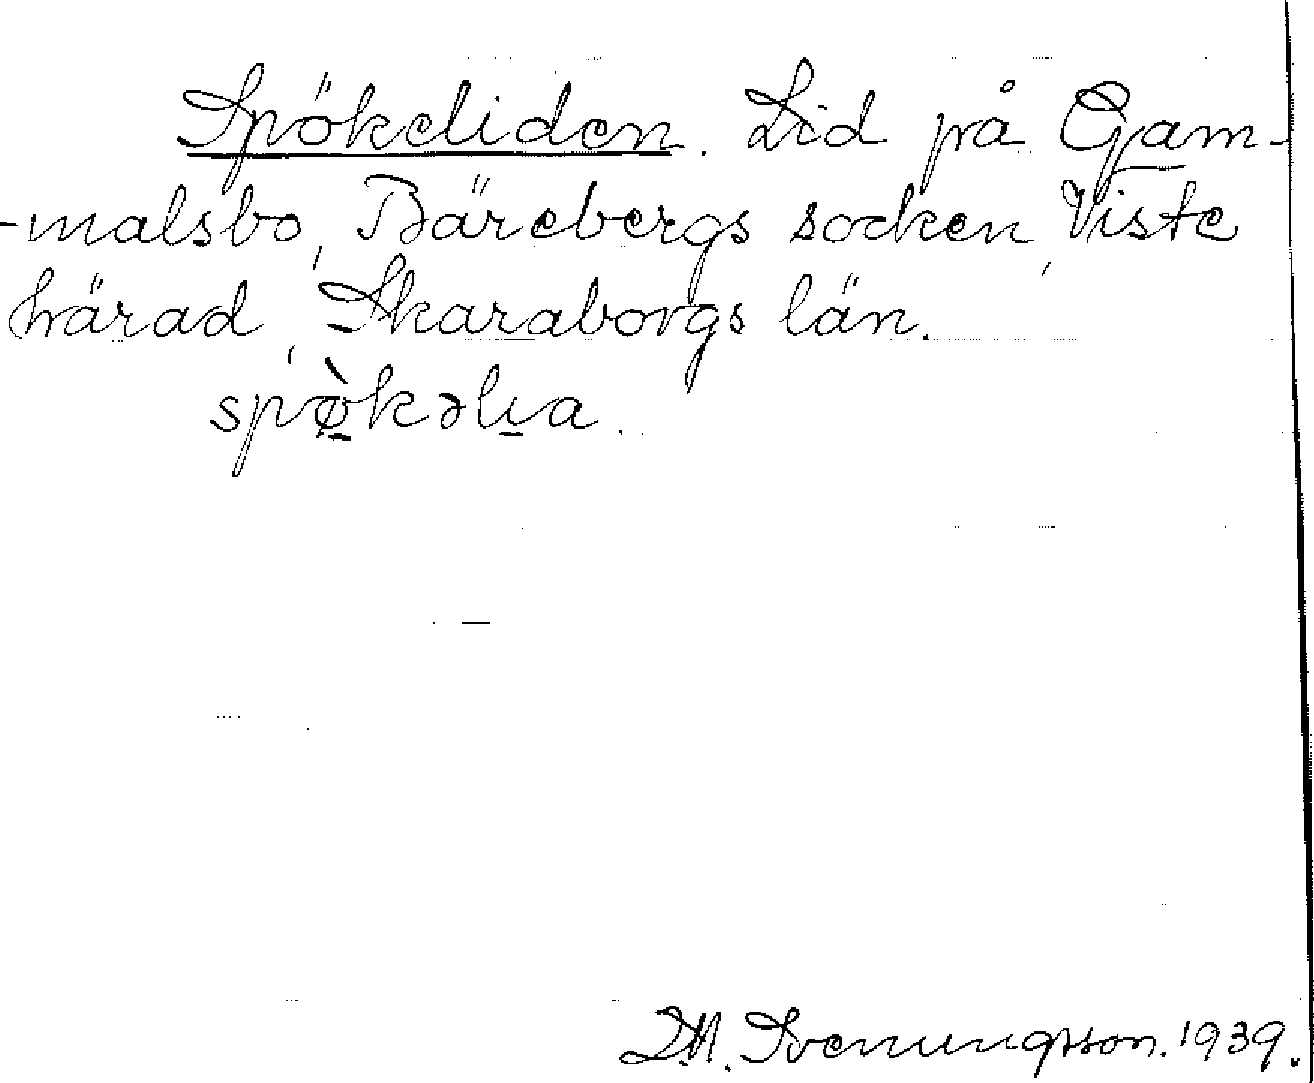 Spökeliden. Lid på Gam-
-malsbo, Bärebergs socken, Viste
härad, Skaraborgs län.
spø̀kəlia.
D.M. Svenungsson. 1939.